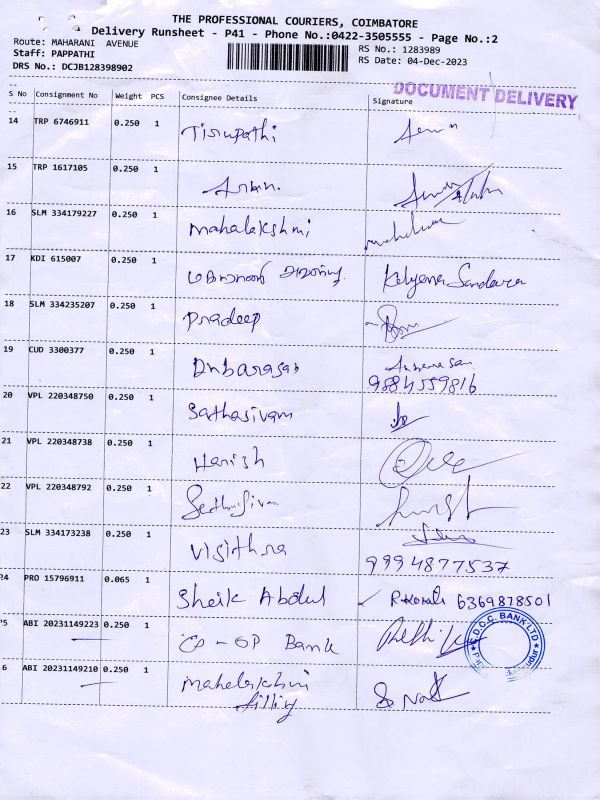 THE PROFESSIONAL COURIERS, COIMBATORE
Delivery Runsheet - P41 - Phone No.:0422-3505555 - Page No.:2
Route: MAHARANI AVENUE
RS No.: 1283989
Staff: PAPPATHI
RS Date: 04-Dec-2023
DRS No.: DCJB128398902
DOCUMENT DELIVERY
S No Consignment No Weight PCS Consignee Details Signature
14 TRP 6746911 0.250 1 Tirupathi
15 TRP 1617105 0.250 1
16 SLM 334179227 0.250 1 Mahalakshmi
17 KDI 615007 0.250 1 Kalyana Sundara
18 SLM 334235207 0.250 1 Pradeep
19 CUD 3300377 0.250 1 Anbarasan
9884559816
20 VPL 220348750 0.250 1 Sathasivam
21 VPL 220348738 0.250 1 Harish
22 VPL 220348792 0.250 1
23 SLM 334173238 0.250 1
9994877537
24 PRO 15796911 0.065 1 Sheik Abdul 6369878501
25 ABI 20231149223 0.250 1 CO-OP Bank
C.D.C.C. BANK LTD
6 ABI 20231149210 0.250 1 Mahalakshmi